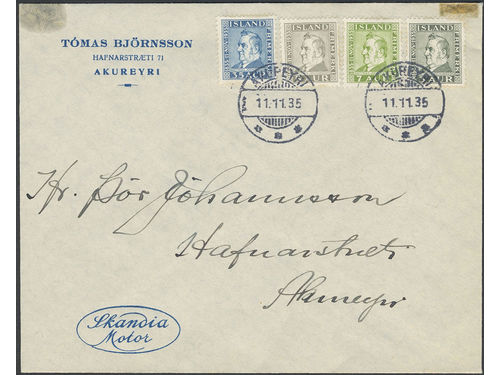 TÓMAS BJÖRNSSON
HAFNARSTRÆTI 71
AKUREYRI
ÍSLAND ÍSLAND ÍSLAND ÍSLAND
35 AUR 7 AUR
AKUREYRI AKUREYRI
11.11.35 11.11.35
Hr. Þór Jóhannsson
Hafnarstræti
Akureyri
Skandia
Motor